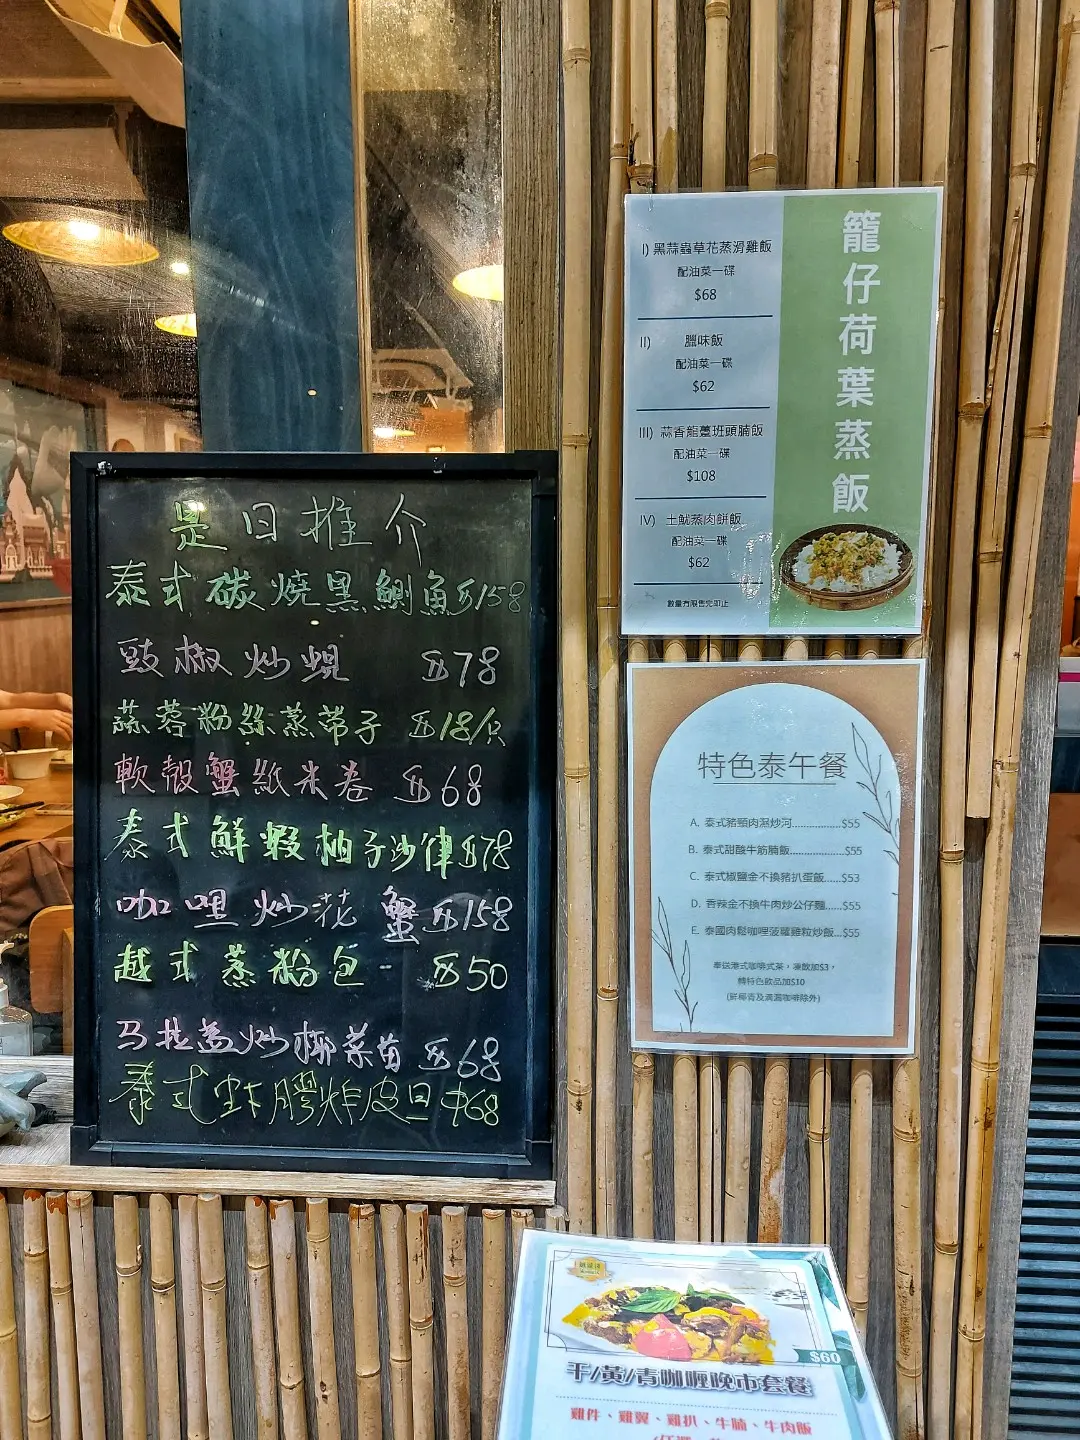 是日推介
泰式碳燒黑鱲魚$158
豉椒炒蜆 $78
蒜蓉粉絲蒸帶子 $18/只
軟殼蟹紙米卷 $68
泰式鮮蝦柚子沙律$78
咖哩炒花蟹$158
越式蒸粉包 $50
马拉盞炒椰菜苗 $68
泰式虾膠炸皮旦$68
籠仔荷葉蒸飯
I) 黑蒜蟲草花蒸滑雞飯
配油菜一碟
$68
II) 臘味飯
配油菜一碟
$62
III) 蒜香龍躉班頭腩飯
配油菜一碟
$108
IV) 土魷蒸肉餅飯
配油菜一碟
$62
數量有限售完即止
特色泰午餐
A. 泰式豬頸肉濕炒河.................$55
B. 泰式甜酸牛筋腩飯...................$55
C. 泰式椒鹽金不換豬扒蛋飯......$53
D. 香辣金不換牛肉炒公仔麵......$55
E. 泰國肉鬆咖哩菠蘿雞粒炒飯...$55
奉送港式咖啡或茶，凍飲加$3，
轉特色飲品加$10
(鮮椰青及滴漏咖啡除外)
$60
干/黃/青咖喱晚市套餐
雞件、雞翼、雞扒、牛腩、牛肉飯